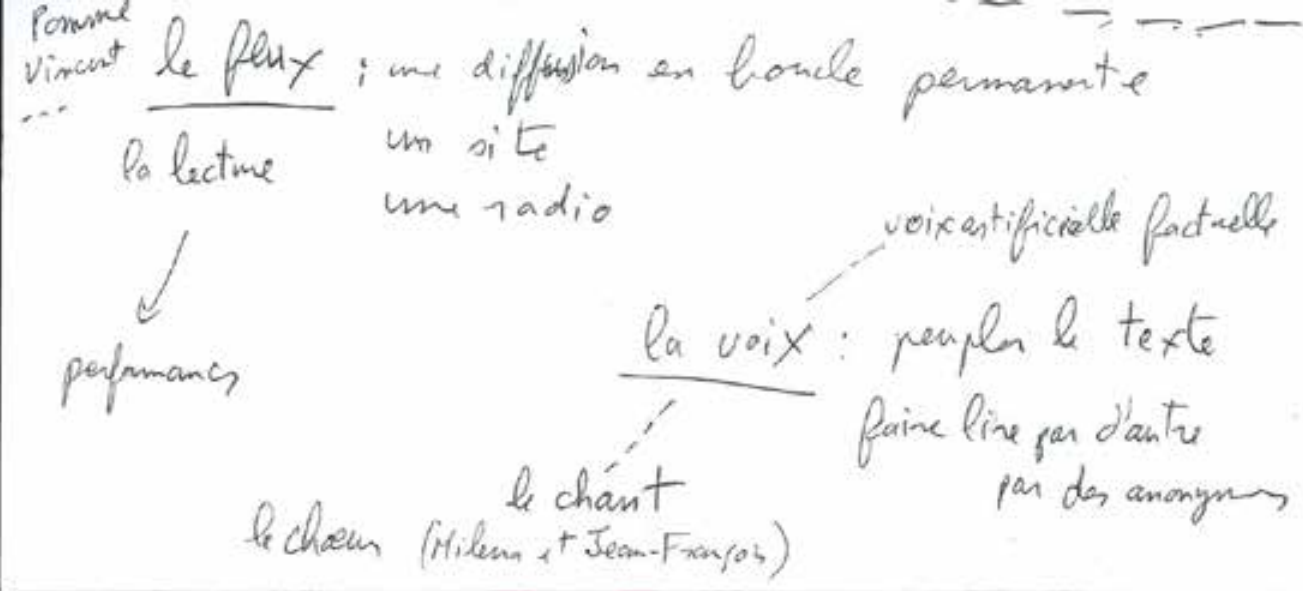 Pomme
Vincent
...
le flux : une diffusion en boucle permanente
la lecture
un site
une radio
performances
voix artificielle factuelle
la voix : peupler le texte
faire lire par d'autre
par des anonymes
le chant
le chœur (Milena et Jean-François)